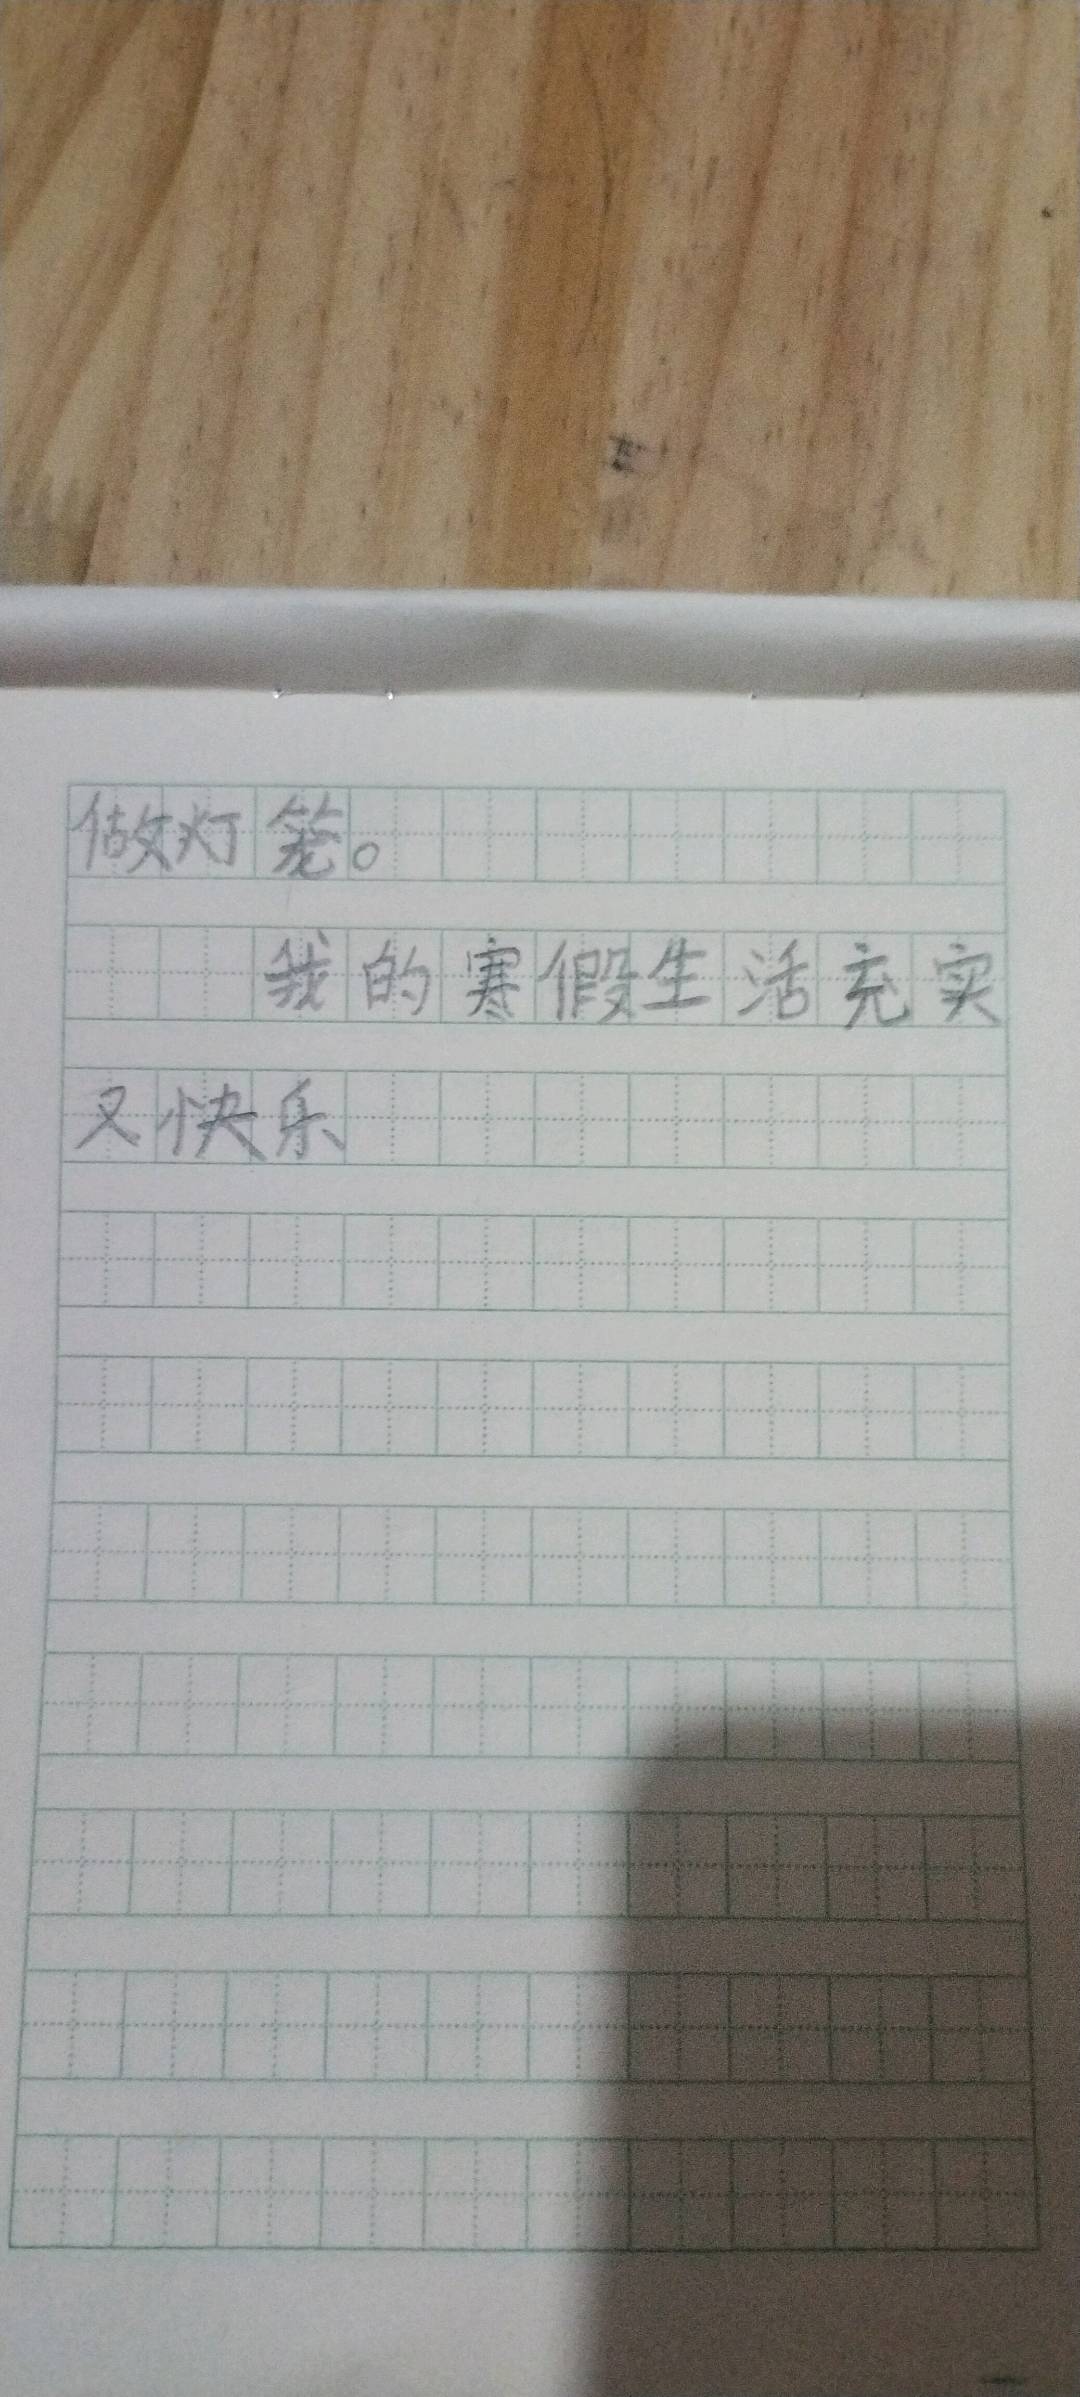 做灯笼。
我的寒假生活充实
又快乐